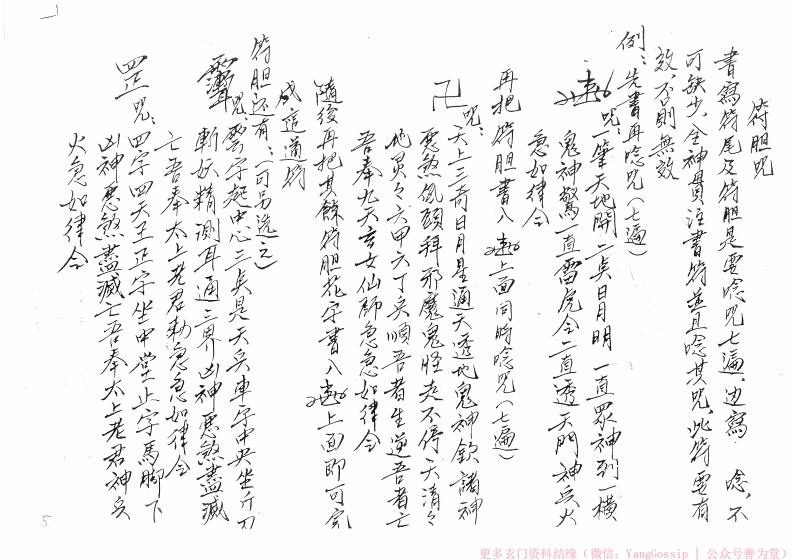 符胆咒
書寫符尾及符胆是要唸咒七遍，边寫　唸，不
可缺少，全神貫注書符並且唸其咒，此符要有
效，不則無效
例：先書再唸咒（七遍）
咒：一筆天地開二点日月明　一直眾神列一橫
鬼神驚一直雷虎令二直透天門神兵火
急如律令
再把符胆書入　上面同時唸咒（七遍）
卍　咒：天上三奇日月星通天透地鬼神欽諸神
惡煞低頭拜邪魔鬼怪走不停天清々
地灵々六甲六丁兵順吾者生逆吾者亡
吾奉九天玄女仙師急急如律令
隨後再把其餘符胆花字書入　上面即可完
成這道符
符胆还有：（可另选之）
咒：雲字起中心三点是天兵車字中央坐斤刀
斬妖精測耳通三界凶神惡煞盡滅
亡吾奉太上老君勅急急如律令
咒：四字四天王正字坐中堂止字馬脚下
凶神惡煞盡滅亡吾奉太上老君神兵
火急如律令
5
更多玄门资料结缘（微信：YangGossip | 公众号善为堂）